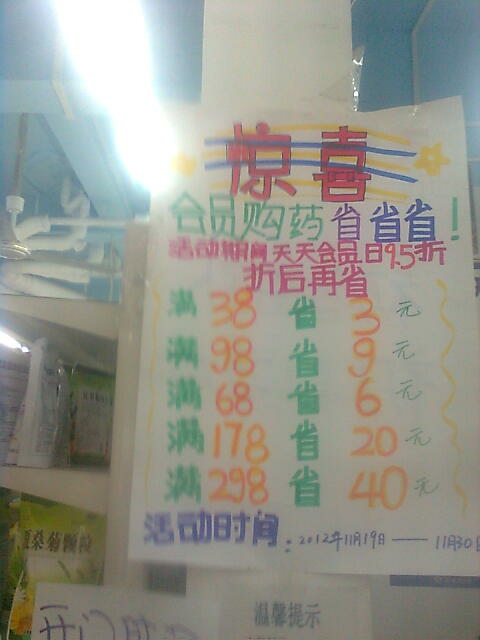 惊喜
会员购药省省省!
活动期间天天会员日9.5折
折后再省
满38省3元
满98省9元
满68省6元
满178省20元
满298省40元
活动时间:2012年11月19日——11月30日
桑菊颗粒
温馨提示
开门